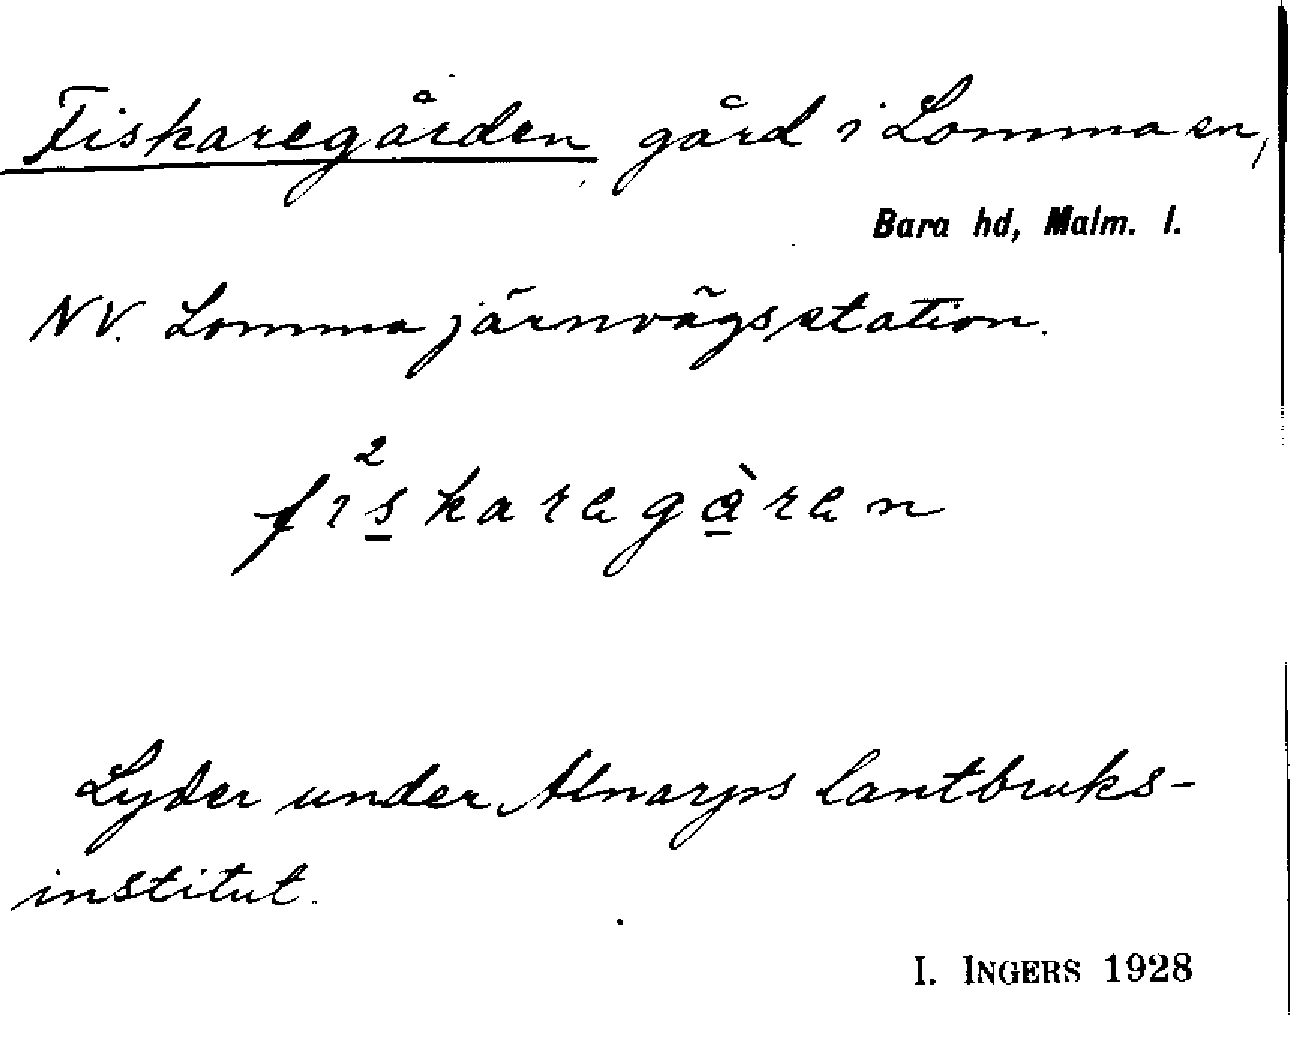 Fiskaregården gård i Lomma sn,
Bara hd, Malm. l.
NV. Lomma järnvägsstation.
fıs̲²karegà̲ren
Lyder under Alnarps lantbruks-
institut.
I. INGERS 1928